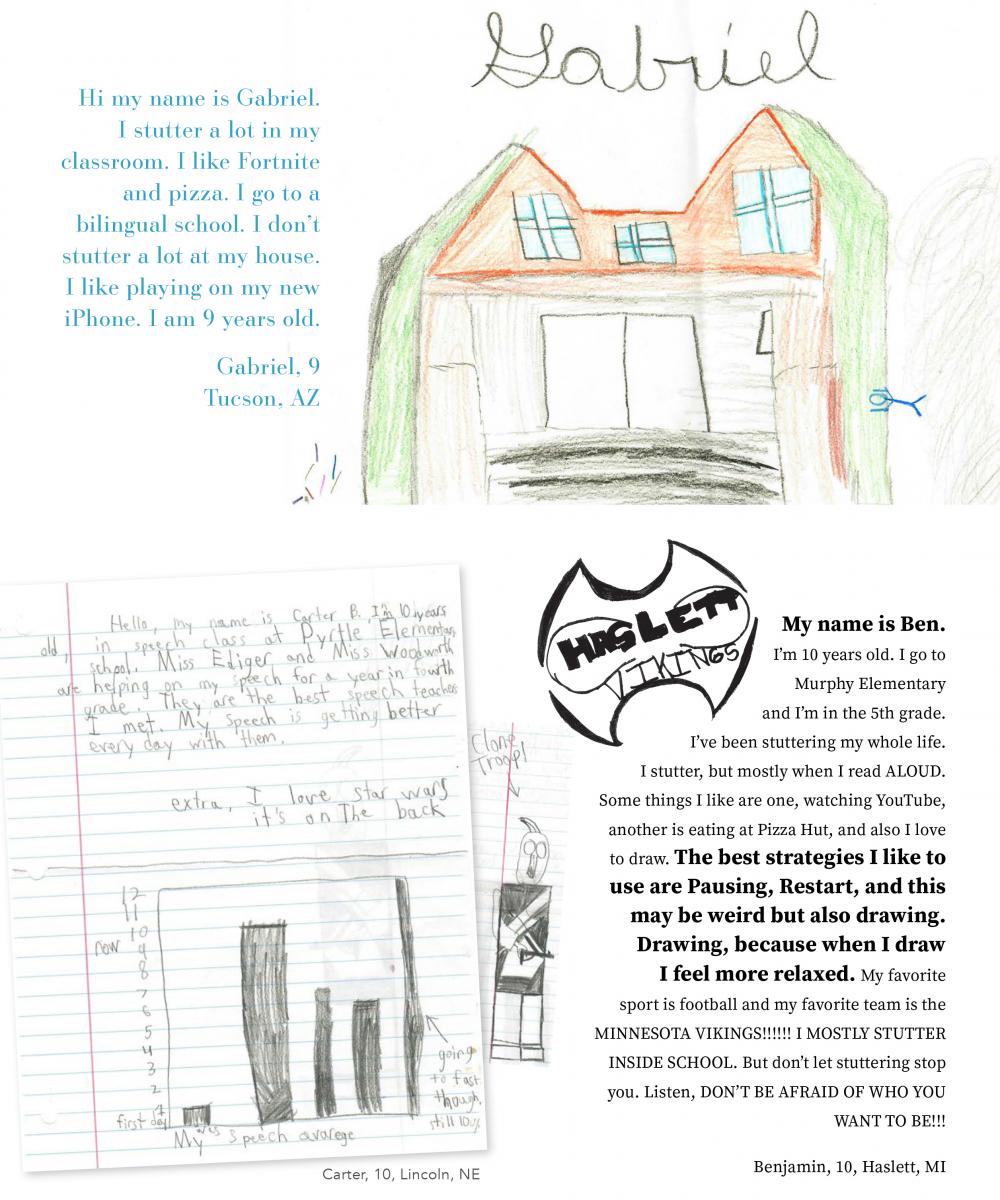 Gabriel
Hi my name is Gabriel.
I stutter a lot in my
classroom. I like Fortnite
and pizza. I go to a
bilingual school. I don't
stutter a lot at my house.
I like playing on my new
iPhone. I am 9 years old.
Gabriel, 9
Tucson, AZ
Hello, my name is Carter B. I'm 10 years
old, in speech class at Pyrtle Elementary
school. Miss Ediger and Miss Woodworth
are helping on my speech for a year in fowrth
grade. They are the best speech teachers
I met. My speech is getting better
every day with them.
extra, I love star wars
it's on The back
12
11
10
now 9
8
7
6
5
4
3
2
first day 1
My speech avarege
going
to fast
though,
still
Carter, 10, Lincoln, NE
Clone
Troop!
HASLETT
VIKINGS
My name is Ben.
I'm 10 years old. I go to
Murphy Elementary
and I'm in the 5th grade.
I've been stuttering my whole life.
I stutter, but mostly when I read ALOUD.
Some things I like are one, watching YouTube,
another is eating at Pizza Hut, and also I love
to draw. The best strategies I like to
use are Pausing, Restart, and this
may be weird but also drawing.
Drawing, because when I draw
I feel more relaxed. My favorite
sport is football and my favorite team is the
MINNESOTA VIKINGS!!!!!! I MOSTLY STUTTER
INSIDE SCHOOL. But don't let stuttering stop
you. Listen, DON'T BE AFRAID OF WHO YOU
WANT TO BE!!!
Benjamin, 10, Haslett, MI